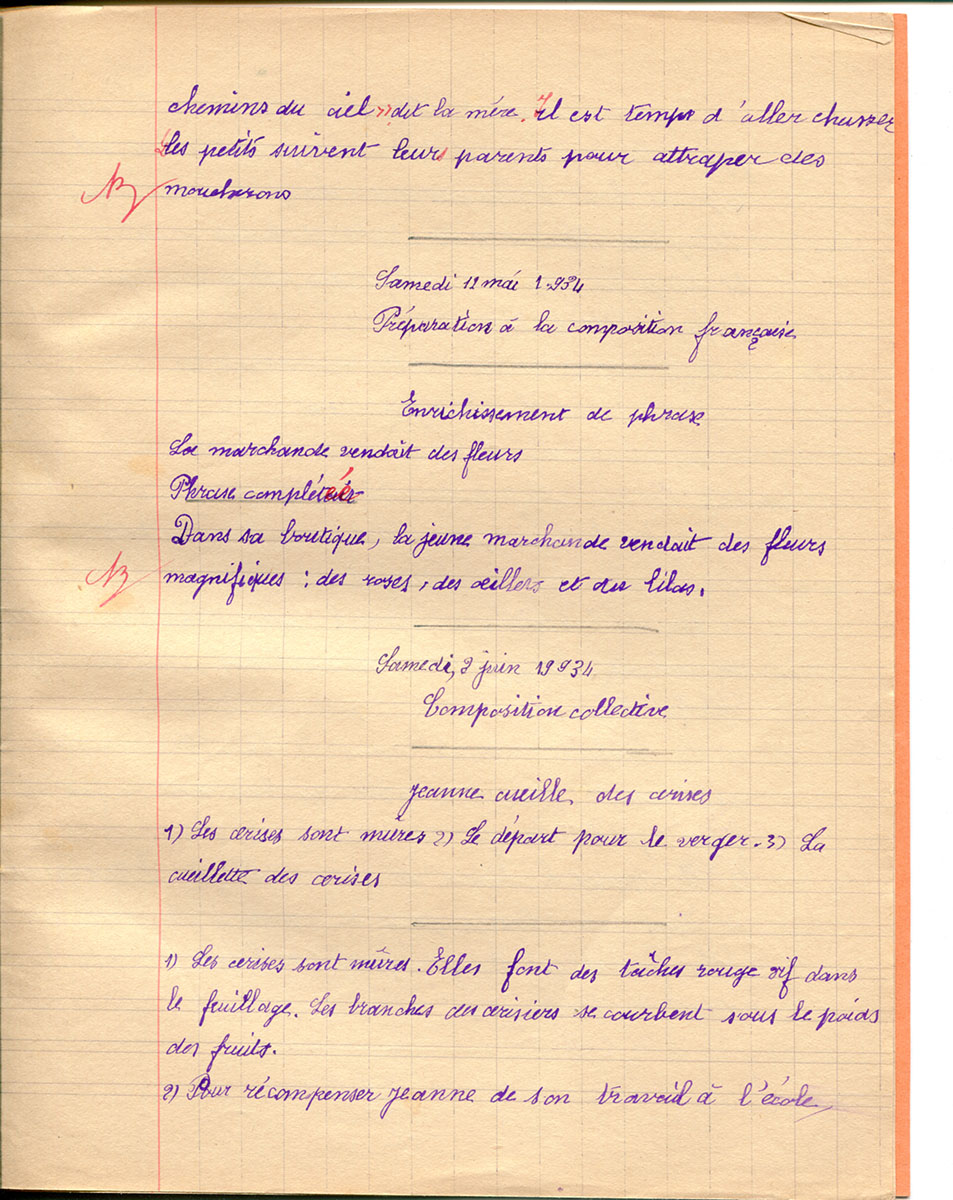 chemins du ciel » dit la mère. Il est temps d'aller chasser
Les petits suivent leurs parents pour attraper des
moucherons
Samedi 12 mai 1934
Préparation à la composition française
Enrichissement de phrase
La marchande vendait des fleurs
Phrase complétée
Dans sa boutique, la jeune marchande vendait des fleurs
magnifiques : des roses, des œillets et du lilas.
Samedi, 2 juin 1934
Composition collective
Jeanne cueille des cerises
1) Les cerises sont mûres 2) Le départ pour le verger. 3) La
cueillette des cerises
1) Les cerises sont mûres. Elles font des tâches rouge vif dans
le feuillage. Les branches des cerisiers se courbent sous le poids
des fruits.
2) Pour récompenser Jeanne de son travail à l'école,